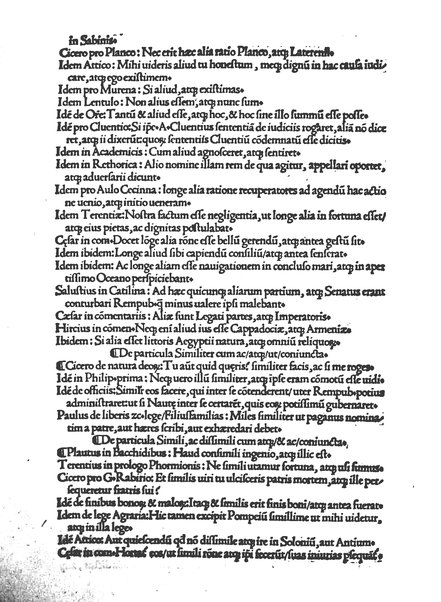 in Sabinis.
Cicero pro Planco: Nec erit hæc alia ratio Planco, atq; Laterensi.
Idem Attico: Mihi uideris aliud tu honestum, meq; dignū in hac causa iudi
care, atq; ego existimem.
Idem pro Murena: Si aliud, atq; existimas.
Idem Lentulo: Non alius essem, atq; nunc sum.
Idē de Or̄e: Tantū & aliud esse, atq; hoc, & hoc sine illo summū esse posse.
Idē pro Cluentio: Si ip̄e. A. Cluentius sententiā de iudiciis rogaret, aliā nō dice
ret, atq; ii dixerūt: quoq; sententiis Cluentiū cōdemnatū esse dicitis.
Idem in Academicis: Cum aliud agnosceret, atq; sentiret.
Idem in Rethorica: Alio nomine illam rem de qua agitur, appellari oportet,
atq; aduersarii dicunt.
Idem pro Aulo Cecinna: longe alia ratione recuperatores ad agendū hac actio
ne uenio, atq; initio ueneram.
Idem Terentiæ: Nostra factum esse negligentia, ut longe alia in fortuna esset/
atq; eius pietas, ac dignitas postulabat.
Cęsar in com. Docet lōge alia rōne esse bellū gerendū, atq; antea gestū sit.
Idem ibidem: Longe aliud sibi capiendū consiliū/atq; antea senserat.
Idem ibidem: Ac longe aliam esse nauigationem in concluso mari, atq; in aper
tissimo Oceano perspiciebant.
Salustius in Catilina: Ad hæc quicunq; aliarum partium, atq; Senatus erant
conturbari Rempub. q̄ minus ualere ipsi malebant.
Cæsar in cōmentariis: Aliæ sunt Legati partes, atq; Imperatoris.
Hircius in cōmen. Neq; eni aliud ius esse Cappadociæ, atq; Armeniæ.
Ibidem: Si alia esset littoris Aegyptii natura, atq; omniū reliquoꝝ.
¶De particula Similiter cum ac/atq;/ut/coniuncta.
¶Cicero de natura deoꝝ: Tu aūt quid queris? similiter facis, ac si me roges.
Idē in Philip. prima: Neq; uero illū similiter, atq; ip̄e eram cōmotū esse uidi.
Idē de officiis: Simil'r eos facere, qui inter se cōtenderent/uter Rempub. potius
administraret: ut si Nautę inter se certarēt, quis eoꝝ potissimū gubernaret.
Paulus de liberis ꝛc. lege/Filiusfamilias: Miles similiter ut paganus nomina
tim a patre, aut hæres scribi, aut exhæredari debet.
¶De particula Simili, ac dissimili cum atq; & ac/coniuncta.
¶Plautus in Bacchidibus: Haud consimili ingenio, atq; illic est.
Terentius in prologo Phormionis: Ne simili utamur fortuna, atq; usi sumus.
Cicero pro G. Rabirio: Et similis uiri tu ulcisceris patris mortem, atq; ille per
sequeretur fratris sui?
Idē de finibus bonoꝝ & maloꝝ: Itaq; & similis erit finis boni/atq; antea fuerat.
Idem de lege Agraria: Hic tamen excipit Pompeiū simillime ut mihi uidetur,
atq; in illa lege.
Idē Attico: Aut quiescendū qd nō dissimile atq; ire in Soloniū, aut Antium.
Cęsar in com. eos/ut simili rōne atq; ip̄i fecerūt/suas iniurias